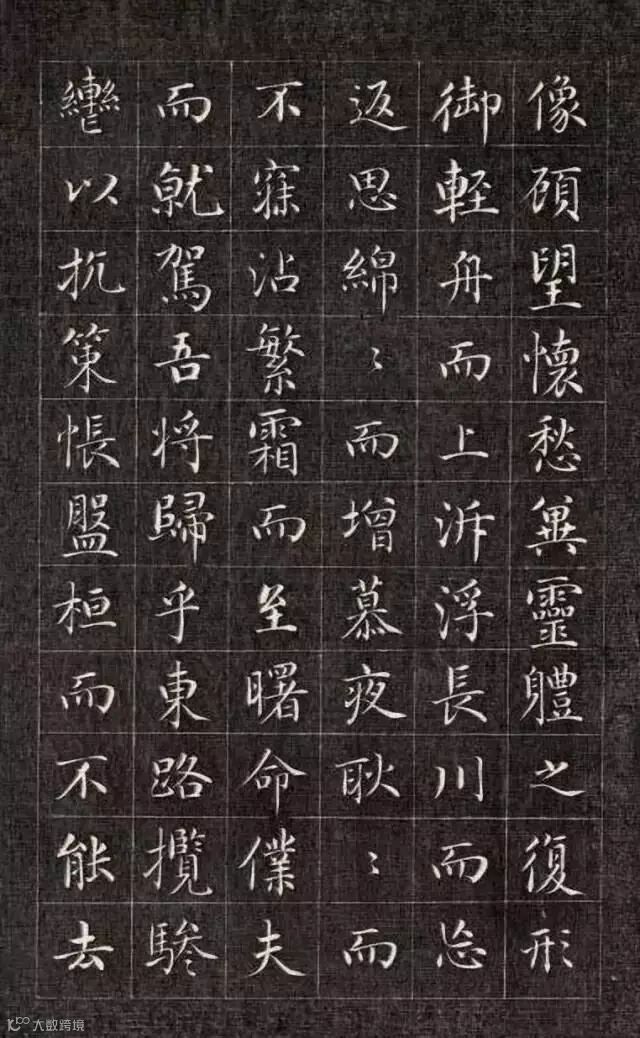 像頋望懷愁兾靈軆之復形
御輕舟而上泝浮長川而忘
返思綿〻而增慕夜耿〻而
不寐沾繁霜而至曙命僕夫
而就駕吾将歸乎東路攬驂
轡以抗策悵盤桓而不能去
大数跨境